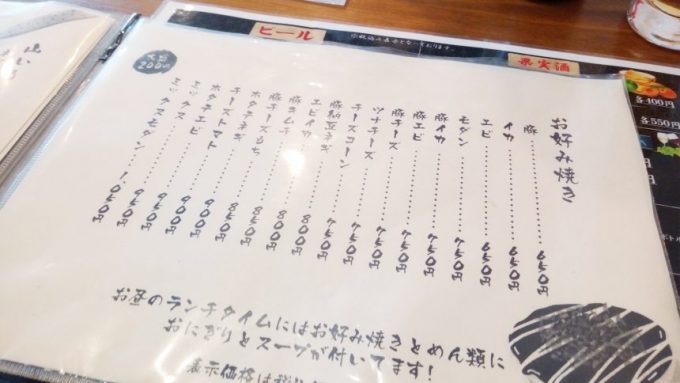 お好み焼き
豚‥‥‥‥650円
イカ‥‥‥‥650円
エビ‥‥‥‥650円
モダン‥‥‥‥750円
豚イカ‥‥‥‥750円
豚エビ‥‥‥‥750円
豚チーズ‥‥‥‥750円
ツナチーズ‥‥‥‥750円
チーズコーン‥‥‥‥750円
豚納豆ネギ‥‥‥‥750円
エビイカ‥‥‥‥800円
豚キムチ‥‥‥‥800円
豚チーズもち‥‥‥‥800円
ホタテネギ‥‥‥‥850円
チーズトマト‥‥‥‥900円
ホタテエビ‥‥‥‥900円
ミックス‥‥‥‥950円
ミックスモダン‥‥1050円
お昼のランチタイムにはお好み焼きとめん類に
おにぎりとスープが付いてます!
表示価格は税
ビール
果実酒
各400円
各550円